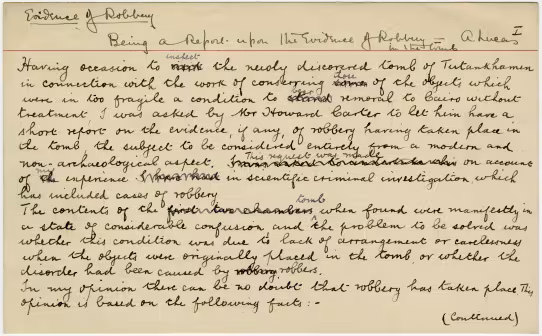 Evidence of Robbery
I
Being a Report upon the Evidence of Robbery in the tomb A Lucas
Having occasion to inspect the newly discovered tomb of Tutankhamen
in connection with the work of conserving those of the objects which
were in too fragile a condition to bear removal to Cairo without
treatment, I was asked by Mr Howard Carter to let him have a
short report on the evidence, if any, of robbery having taken place in
the tomb, the subject to be considered entirely from a modern and
non-archaeological aspect. This request was made on account
of my experience in scientific criminal investigation which
has included cases of robbery
The contents of the tomb when found were manifestly in
a state of considerable confusion and the problem to be solved was
whether this condition was due to lack of arrangement or carelessness
when the objects were originally placed in the tomb or whether the
disorder had been caused by robbers.
In my opinion there can be no doubt that robbery has taken place This
opinion is based on the following facts:-
(Continued)